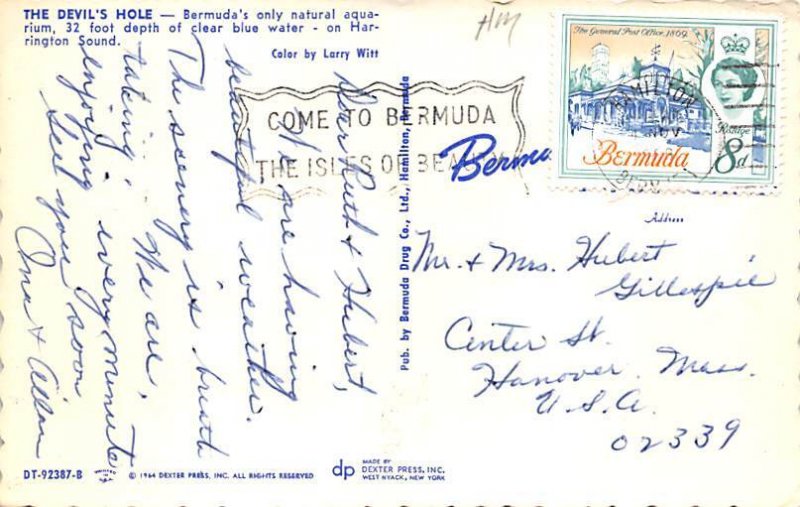 THE DEVIL'S HOLE — Bermuda's only natural aqua-
rium, 32 foot depth of clear blue water - on Har-
rington Sound.
Color by Larry Witt
HM
COME TO BERMUDA
THE ISLES OF BEAU
Bermu
The General Post Office, 1869
HAMILTON
NOV
Postage
Bermuda
8d
Dear Ruth & Hubert,
We are having
beautiful weather.
The scenery is breath
taking. We are
enjoying every minute
See you soon
Ona & Allan
Pub. by Bermuda Drug Co., Ltd., Hamilton, Bermuda
Address
Mr. & Mrs. Hubert
Gillespie
Center St.
Hanover, Mass.
U.S.A.
02339
DT-92387-B
© 1964 DEXTER PRESS, INC. ALL RIGHTS RESERVED
dp
MADE BY
DEXTER PRESS, INC.
WEST NYACK, NEW YORK